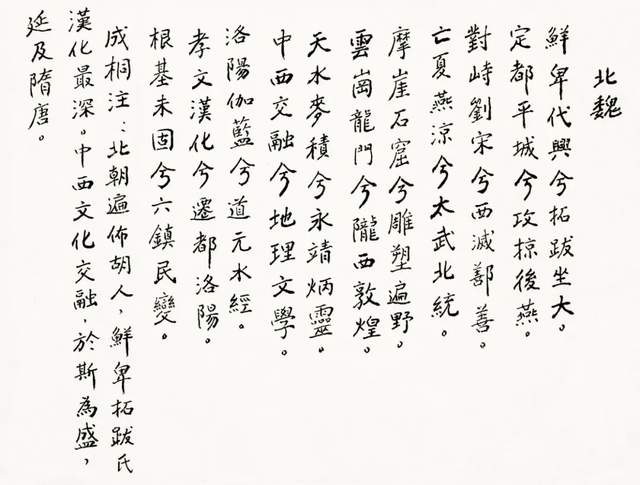 北魏
鮮卑代興兮拓跋坐大。
定都平城兮攻掠後燕。
對峙劉宋兮西滅鄯善。
亡夏燕涼兮太武北統。
摩崖石窟兮雕塑遍野。
雲崗龍門兮隴西敦煌。
天水麥積兮永靖炳靈。
中西交融兮地理文學。
洛陽伽藍兮道元水經。
孝文漢化兮遷都洛陽。
根基未固兮六鎮民變。
成桐注：北朝遍佈胡人，鮮卑拓跋氏
漢化最深。中西文化交融，於斯為盛，
延及隋唐。